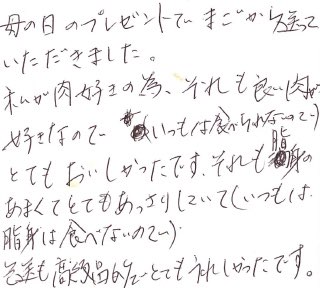 母の日のプレゼントでまごから送って
いただきました。
私が肉好きの為、それも良い肉が
好きなので(いつもは食べられないので)
とてもおいしかったです、それも脂身の
あまくてとてもあっさりしていて(いつもは
脂身は食べないので)
も高級品的でとてもうれしかったです。